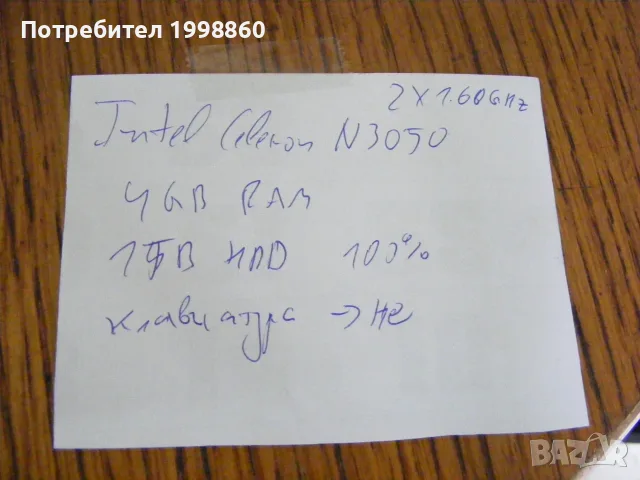 Потребител 1998860
2 x 1.60GHz
Intel Celeron N3050
4GB RAM
1TB HDD 100%
клавиатура → не
BAZAR